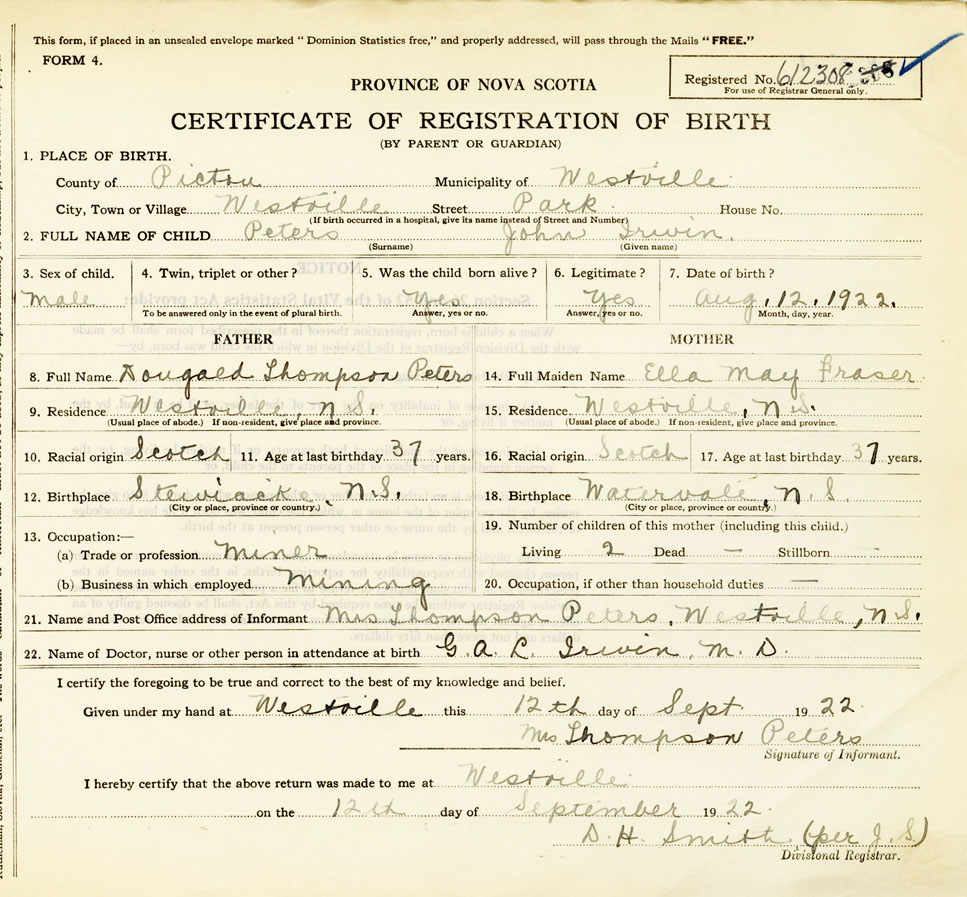 This form, if placed in an unsealed envelope marked “ Dominion Statistics free,” and properly addressed, will pass through the Mails “FREE.”
FORM 4.
Registered No. 612308
For use of Registrar General only.
PROVINCE OF NOVA SCOTIA
CERTIFICATE OF REGISTRATION OF BIRTH
(BY PARENT OR GUARDIAN)
1. PLACE OF BIRTH.
County of Pictou Municipality of Westville
City, Town or Village Westville Street Park House No.
(If birth occurred in a hospital, give its name instead of Street and Number)
2. FULL NAME OF CHILD Peters John Irwin.
(Surname) (Given name)
3. Sex of child. 4. Twin, triplet or other? 5. Was the child born alive? 6. Legitimate? 7. Date of birth?
Male Yes Yes Aug. 12. 1922.
To be answered only in the event of plural birth. Answer, yes or no. Answer, yes or no. Month, day, year.
FATHER MOTHER
8. Full Name Dougald Thompson Peters 14. Full Maiden Name Ella May Fraser
9. Residence Westville, N.S. 15. Residence Westville, N.S.
(Usual place of abode.) If non-resident, give place and province. (Usual place of abode.) If non-resident, give place and province.
10. Racial origin Scotch 11. Age at last birthday 37 years. 16. Racial origin Scotch 17. Age at last birthday 37 years.
12. Birthplace Stewiacke, N.S. 18. Birthplace Watervale, N.S.
(City or place, province or country.) (City or place, province or country.)
19. Number of children of this mother (including this child.)
13. Occupation:—
(a) Trade or profession Miner Living 2 Dead — Stillborn —
(b) Business in which employed Mining 20. Occupation, if other than household duties —
21. Name and Post Office address of Informant Mrs Thompson Peters, Westville, N.S.
22. Name of Doctor, nurse or other person in attendance at birth G. A. L. Irwin, M. D.
I certify the foregoing to be true and correct to the best of my knowledge and belief.
Given under my hand at Westville this 12th day of Sept 1922
Mrs Thompson Peters
Signature of Informant.
I hereby certify that the above return was made to me at Westville
on the 12th day of September 1922
D. H. Smith (per J. S.)
Divisional Registrar.